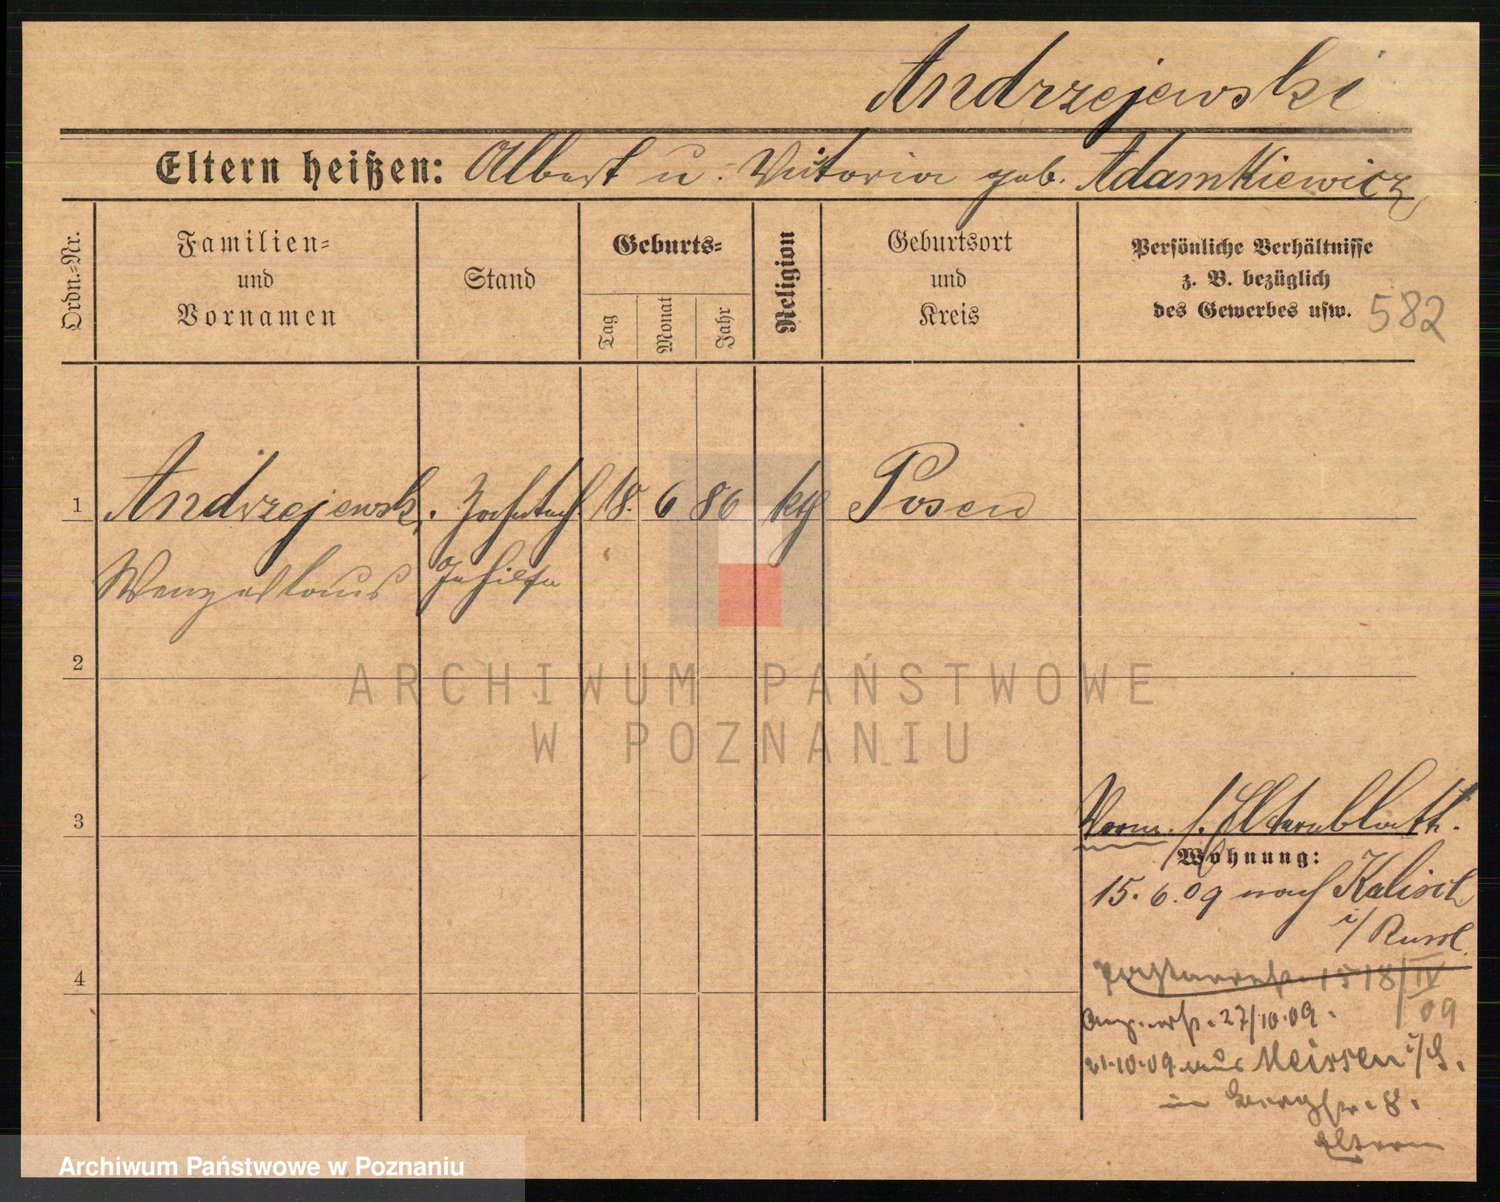 Andrzejewski
Eltern heißen: Albert u. Victoria geb. Adamkiewicz
Ordn.-Nr.
Familien-
und
Vornamen
Stand
Geburts-
Tag
Monat
Jahr
Religion
Geburtsort
und
Kreis
Persönliche Verhältnisse
z. B. bezüglich
des Gewerbes usw.
582
1 Andrzejewski. 18. 6 86 kth Posen
Wenzeslaus Gehilfe
2
ARCHIWUM PAŃSTWOWE
W POZNANIU
3
Vorm. s. Elternblatt.
Wohnung:
15.6.09 nach Kalisch
i/ Russl.
4
1518/IV
09
27/10.09.
21.10.09 aus Meissen i/S.
in 8.
Eltern
Archiwum Państwowe w Poznaniu